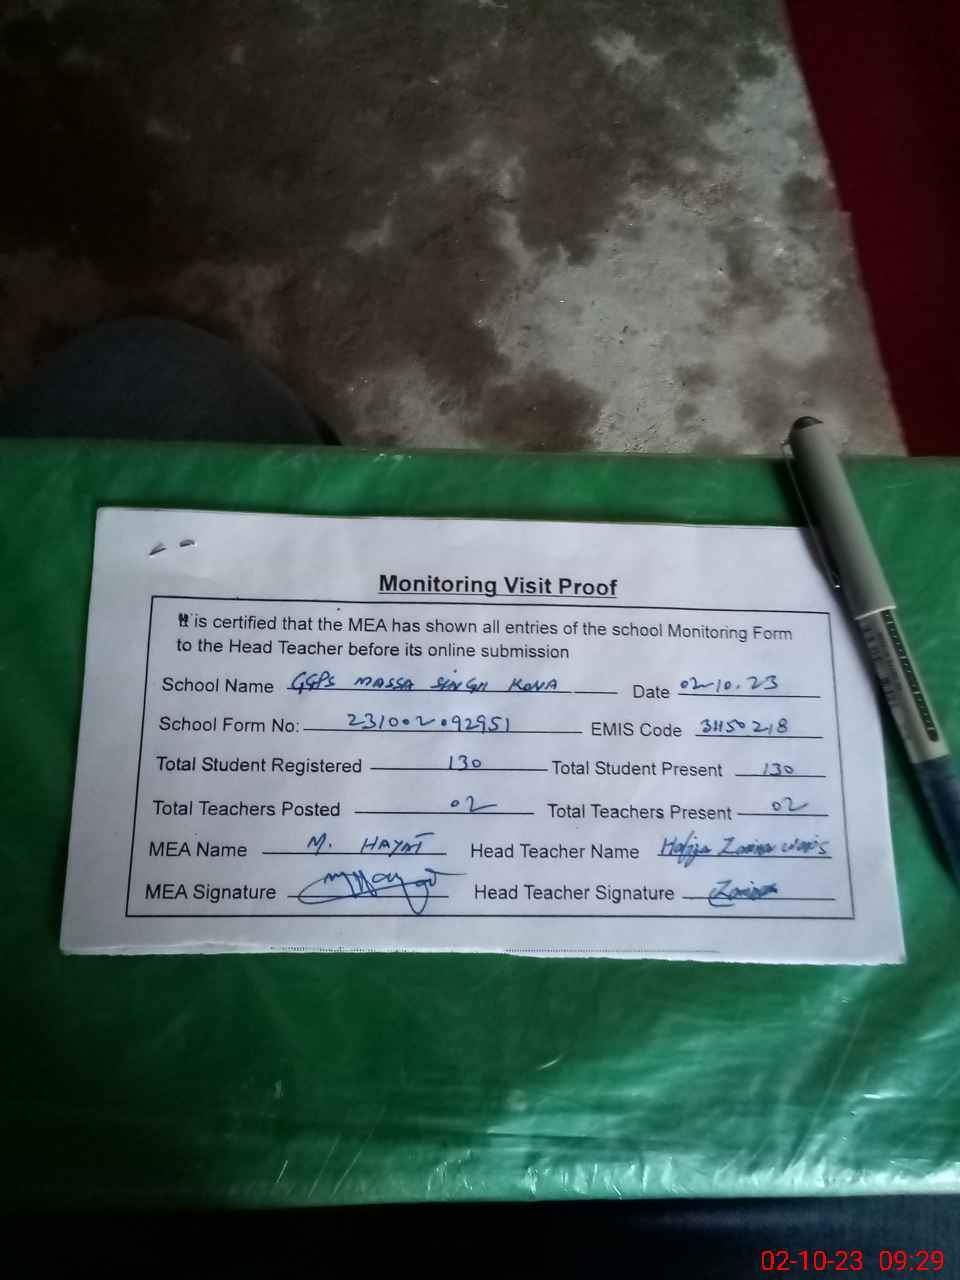 Monitoring Visit Proof
It is certified that the MEA has shown all entries of the school Monitoring Form
to the Head Teacher before its online submission
School Name GGPS MASSA SINGH KONA Date 02-10.23
School Form No: 231002092951 EMIS Code 31150218
Total Student Registered 130 Total Student Present 130
Total Teachers Posted 02 Total Teachers Present 02
MEA Name M. HAYAT Head Teacher Name Hafiza
MEA Signature Head Teacher Signature
02-10-23 09:29